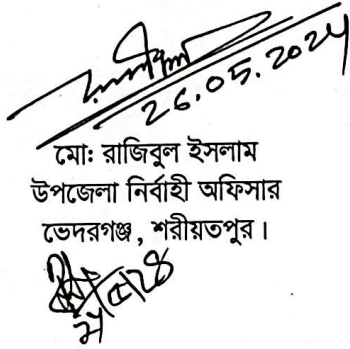 26.05.2024
মো: রাজিবুল ইসলাম
উপজেলা নির্বাহী অফিসার
ভেদরগঞ্জ, শরীয়তপুর।